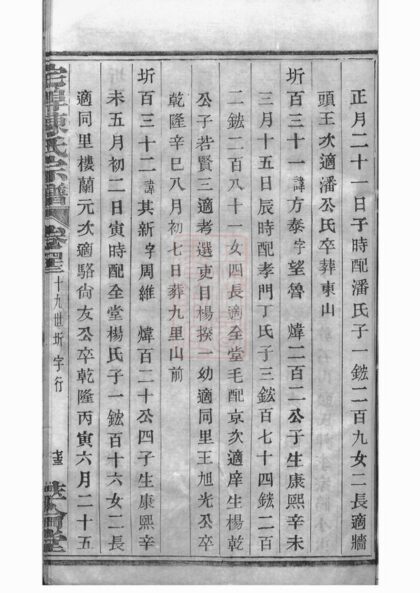 正月二十一日子時配潘氏子一鋐二百九女二長適牆
頭王次適潘公氏卒葬東山
圻百三十一諱方泰字望魯 煒二百二公子生康熙辛未
三月十五日辰時配孝門丁氏子三鋐百七十四鋐二百
二鋐二百八十一女四長適全堂毛配京次適庠生楊乾
公子若賢三適考選吏目楊揆一幼適同里王旭光公卒
乾隆辛巳八月初七日葬九里山前
圻百三十二諱其新字周維 煒百二十公四子生康熙辛
未五月初二日寅時配全堂楊氏子一鋐百十六女二長
適同里樓蘭元次適駱尙友公卒乾隆丙寅六月二十五
陳氏宗譜
十九世圻字行